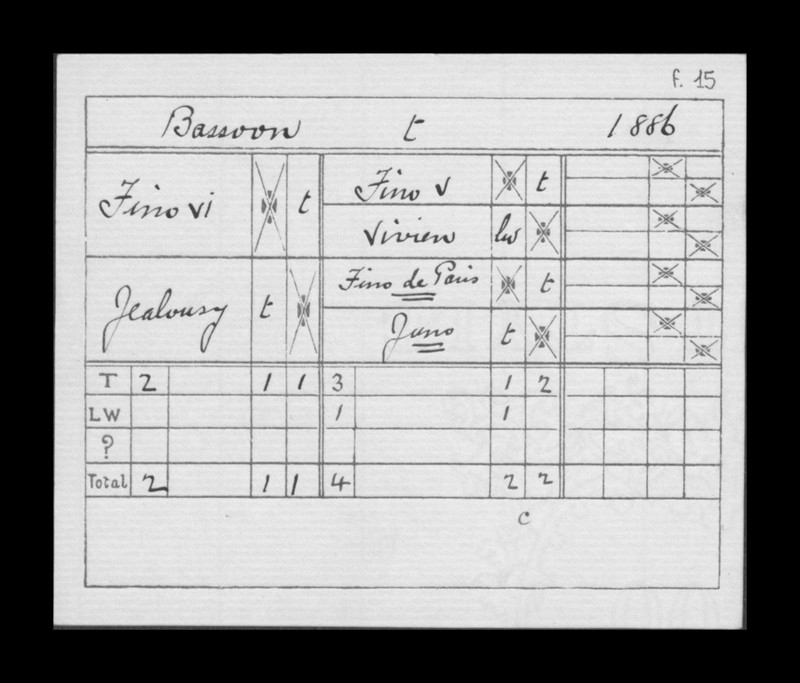 f. 15
Bassoon t 1886
Fino vi t Fino v t
Vivien lw
Jealousy t Fino de Paris t
Juno t
T 2 1 1 3 1 2
LW 1 1
?
Total 2 1 1 4 2 2
C